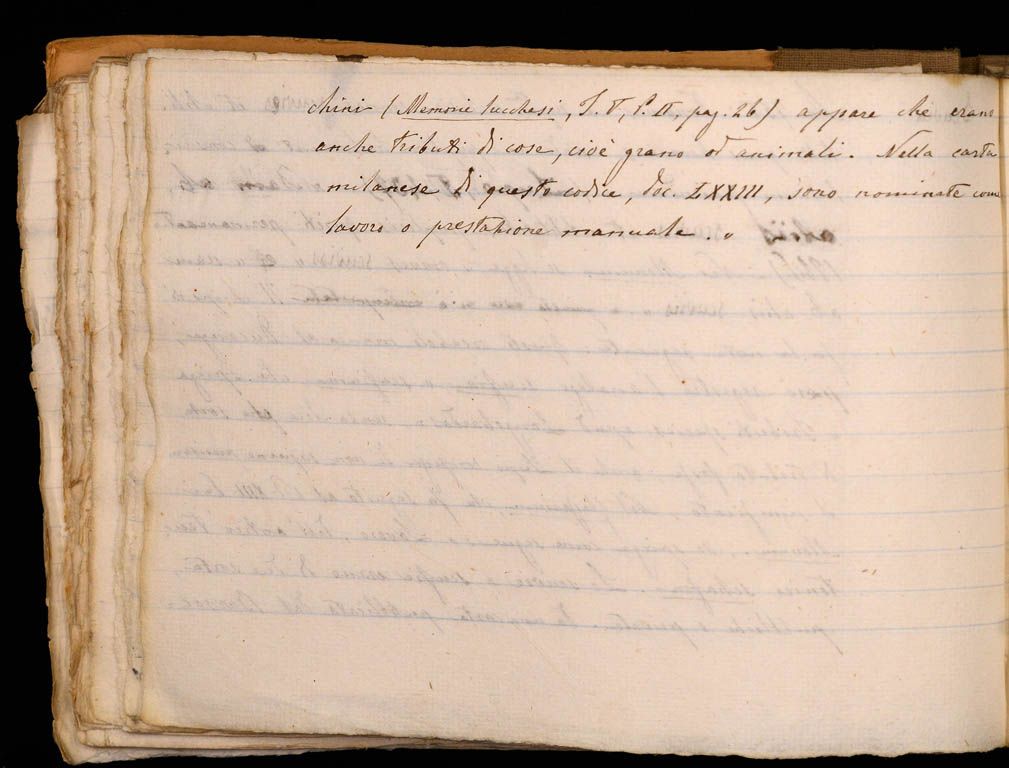 chini (Memorie lucchesi, T. V, P. II, pag. 26) appare che erano
anche tributi di cose, cioè grano od animali. Nella carta
milanese di questo codice, doc. LXXIII, sono nominate come
lavoro o prestazione manuale. „